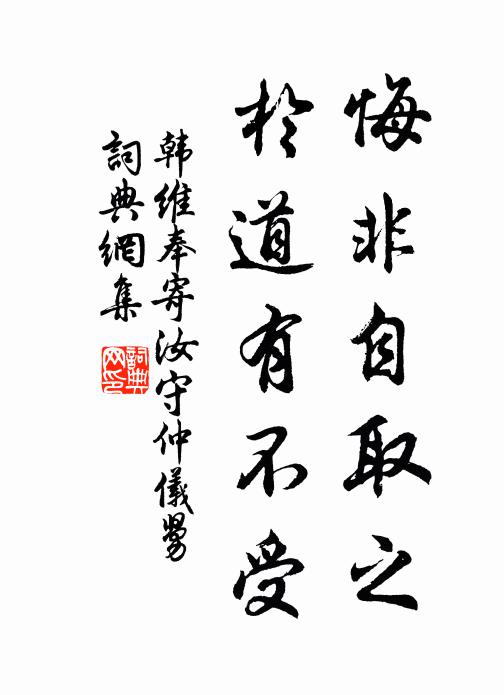 悔非自取之
於道有不受
韩維奉寄汝守仲儀舅
詞典網集
詞典网印